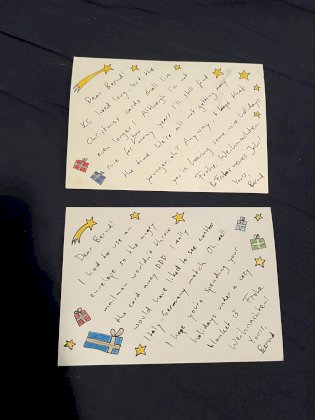 Dear Bernd!
KC lived long, but the
Christmas cards shall live
even longer! Although I'm not
sure for how many years I'll still find
the time. We're all not getting
younger, eh? Anyway, I hope that
you're having some nice holidays.
Frohe Weihnachten
& Frohes neues Jahr!
Yours,
Bernd
Dear Bernd!
I had to use an
envelope so the angry
mailman wouldn't throw
the card away :DDD I really
would have liked to see another
Italy-Germany match. Oh well
I hope you're spending your
holidays under a cozy
blanket :3 Frohe
Weihnachten!
Yours,
Bernd